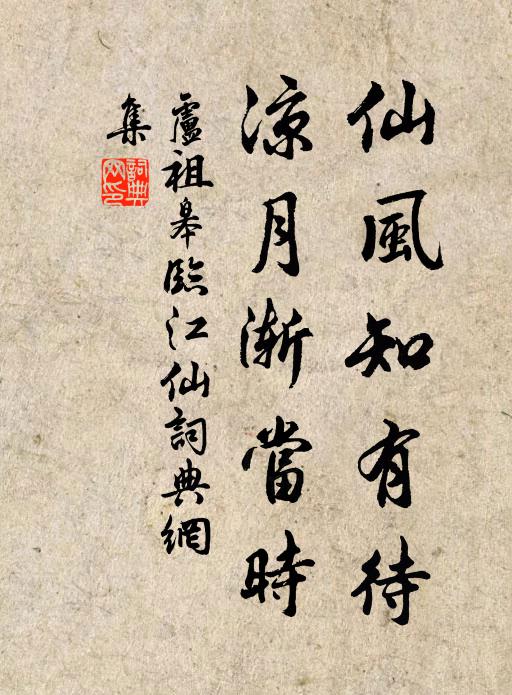 仙風知有待
凉月渐當時
盧祖皋臨江仙詞典網
集
詞典网印